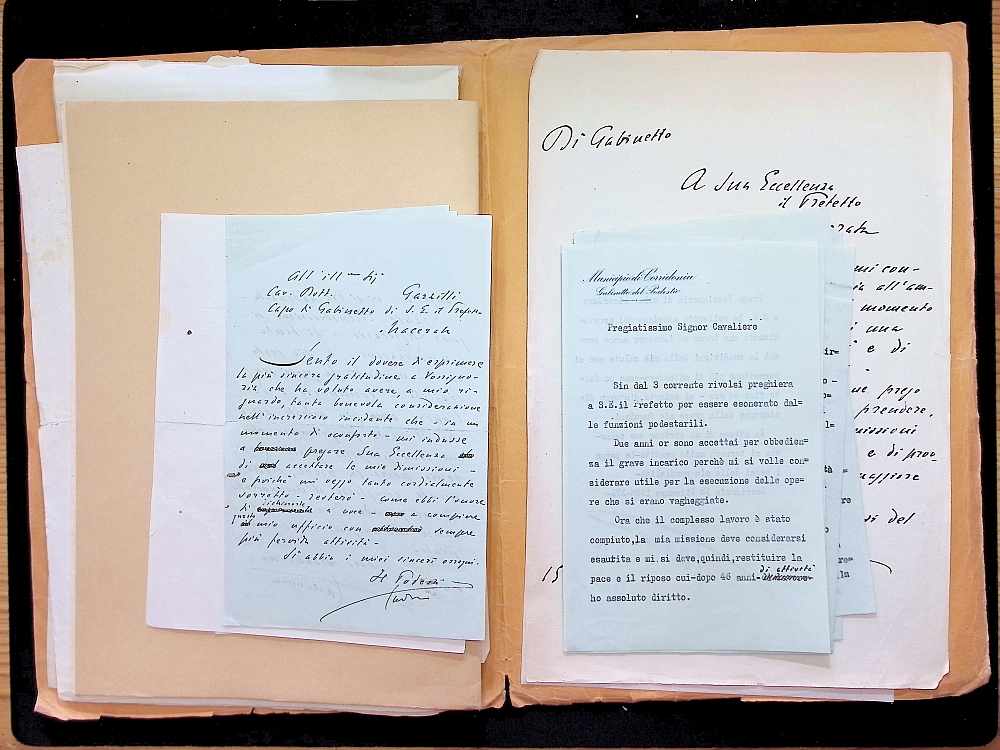 All'ill.mo Sig.
Cav. Dott. Garzilli
Capo di Gabinetto di S. E. il Prefetto
Macerata
Sento il dovere di esprimere
la più sincera gratitudine a Vossigno-
ria che ha voluto avere, a mio ri-
guardo, tanta benevola considerazione
nell'increscioso incidente che - in un
momento di sconforto - mi indusse
a pregare Sua Eccellenza
di accettare le mie dimissioni -
e poichè mi veggo tanto cordialmente
sorretto - resterò - come ebbi l'onore
di a voce - a compiere
mio ufficio con sempre
più fervida attività -
Si abbia i miei sinceri ossequi.
Il Podestà
Di Gabinetto
A Sua Eccellenza
il Prefetto
erata
mi con-
ia all'am-
momento
i una
e di
ue prego
prendere,
missioni
e di pro-
maggiore
si del
15
Municipio di Corridonia
Gabinetto del Podestà
Pregiatissimo Signor Cavaliere
Sin dal 3 corrente rivolsi preghiera
a S.E.il Prefetto per essere esonerato dal=
le funzioni podestarili.
Due anni or sono accettai per obbedien=
za il grave incarico perchè mi si volle con=
siderare utile per la esecuzione delle ope=
re che si erano vagheggiate.
Ora che il complesso lavoro è stato
compiuto,la mia missione deve considerarsi
esautita e mi.si deve,quindi,restituire la
pace e il riposo cui-dopo 46 anni- di attività
ho assoluto diritto.